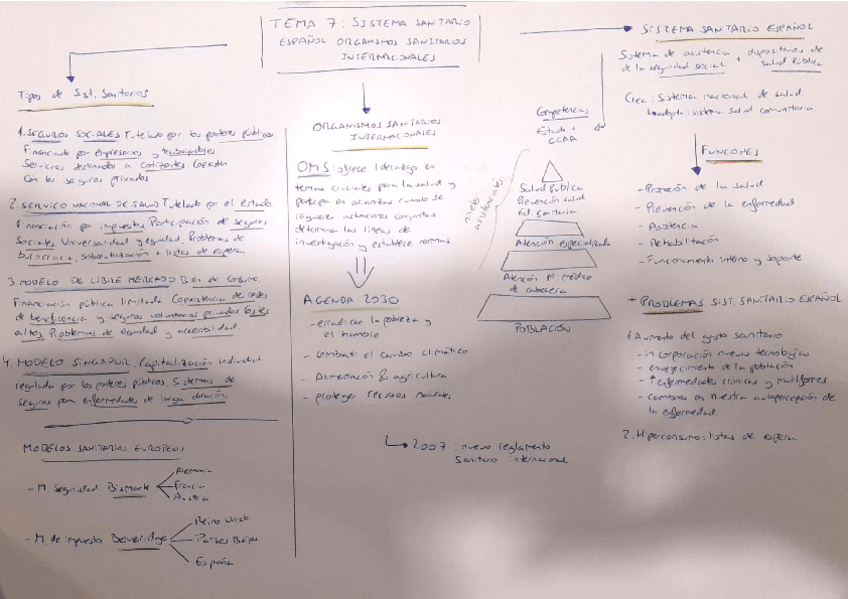 TEMA 7: SISTEMA SANITARIO
ESPAÑOL. ORGANISMOS SANITARIOS
INTERNACIONALES
Tipos de Sist. Sanitarios
1. SEGUROS SOCIALES Tutelado por los poderes públicos.
Financiado por empresarios y trabajadores
Servicios destinados a cotizantes. Coexisten
con los seguros privados
2. SERVICIO NACIONAL DE SALUD Tutelado por el estado.
Financiación por impuestos. Participación de seguros
sociales. Universalidad y equidad. Problemas de
burocracia, sobreutilización + listas de espera
3. MODELO DE LIBRE MERCADO Bien de consumo.
Financiación pública limitada. Coexistencia de redes
de beneficencia y seguros voluntarios privados. Costes
altos. Problemas de equidad y accesibilidad.
4. MODELO SINGAPUR. Capitalización individual
regulada por los poderes públicos. Sistemas de
seguros para enfermedades de larga duración.
MODELOS SANITARIOS EUROPEOS
- M. Seguridad Bismark
Alemania
Francia
Austria
- M. de impuesto Beveridge
Reino Unido
Países Bajos
España
ORGANISMOS SANITARIOS
INTERNACIONALES
OMS: ofrece liderazgo en
temas cruciales para la salud y
participa en alianzas cuando se
requieren actuaciones conjuntas
determina las líneas de
investigación y establece normas.
AGENDA 2030
- erradicar la pobreza y
el hambre
- combatir el cambio climático
- Alimentación & agricultura
- proteger recursos naturales
2007: nuevo reglamento
Sanitario internacional
Competencias
Estado +
CCAA
niveles
asistenciales
Salud Pública
Prevención salud
Ed. sanitaria
Atención especializada
Atención 1ª: médico
de cabecera
POBLACIÓN
SISTEMA SANITARIO ESPAÑOL
Sistema de asistencia + dispositivos de
de la seguridad social salud Pública
Crea: Sistema nacional de salud
adopta: sistema salud comunitaria
FUNCIONES
- Promoción de la salud
- Prevención de la enfermedad
- Asistencia
- Rehabilitación
- Funcionamiento interno y soporte
+ PROBLEMAS SIST. SANITARIO ESPAÑOL
1. Aumento del gasto sanitario
- incorporación nuevas tecnologías
- envejecimiento de la población
- ↑ enfermedades crónicas y
- cambios en nuestra autopercepción de
la enfermedad
2. Hiperconsumo: listas de espera